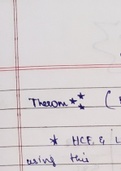 Therom ** (
* HCF & L
using this